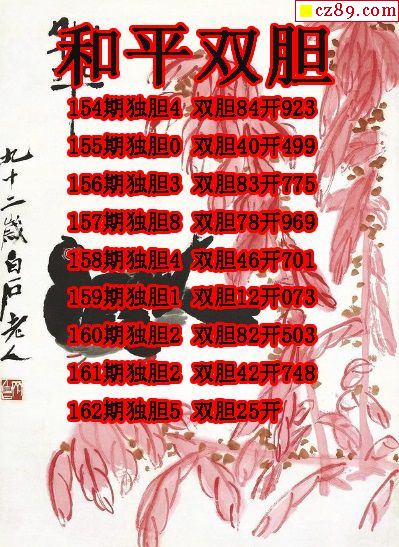 cz89.com
和平双胆
154期独胆4 双胆84开923
155期独胆0 双胆40开499
156期独胆3 双胆83开775
157期独胆8 双胆78开969
158期独胆4 双胆46开701
159期独胆1 双胆12开073
160期独胆2 双胆82开503
161期独胆2 双胆42开748
162期独胆5 双胆25开
九十二岁白石老人